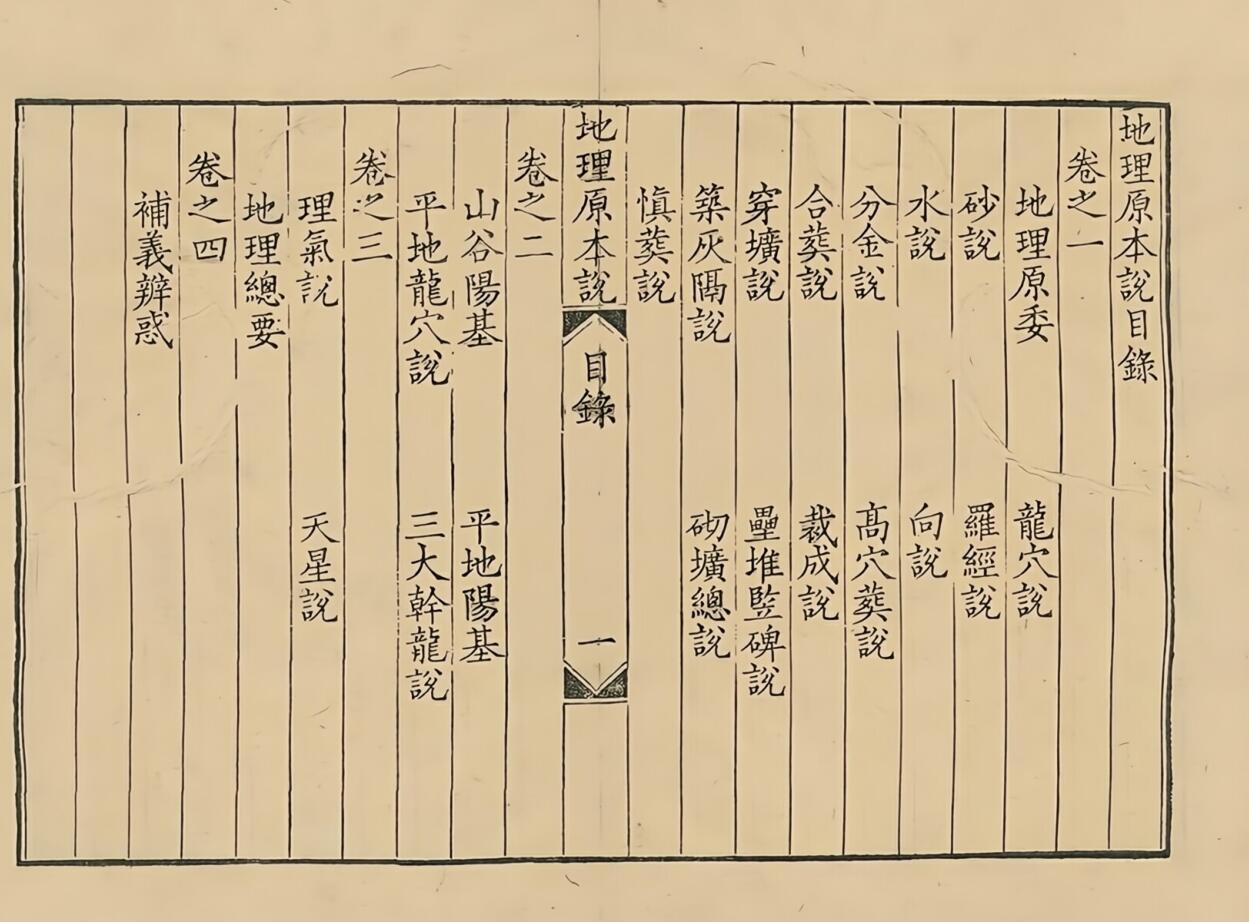 地理原本說目錄
卷之一
地理原委 龍穴說
砂說 羅經說
水說 向說
分金說 高穴葬說
合葬說 裁成說
穿壙說 壘堆竪碑說
築灰隔說 砌壙總說
慎葬說
地理原本說 目錄 一
卷之二
山谷陽基 平地陽基
平地龍穴說 三大幹龍說
卷之三
理氣說 天星說
地理總要
卷之四
補義辨惑